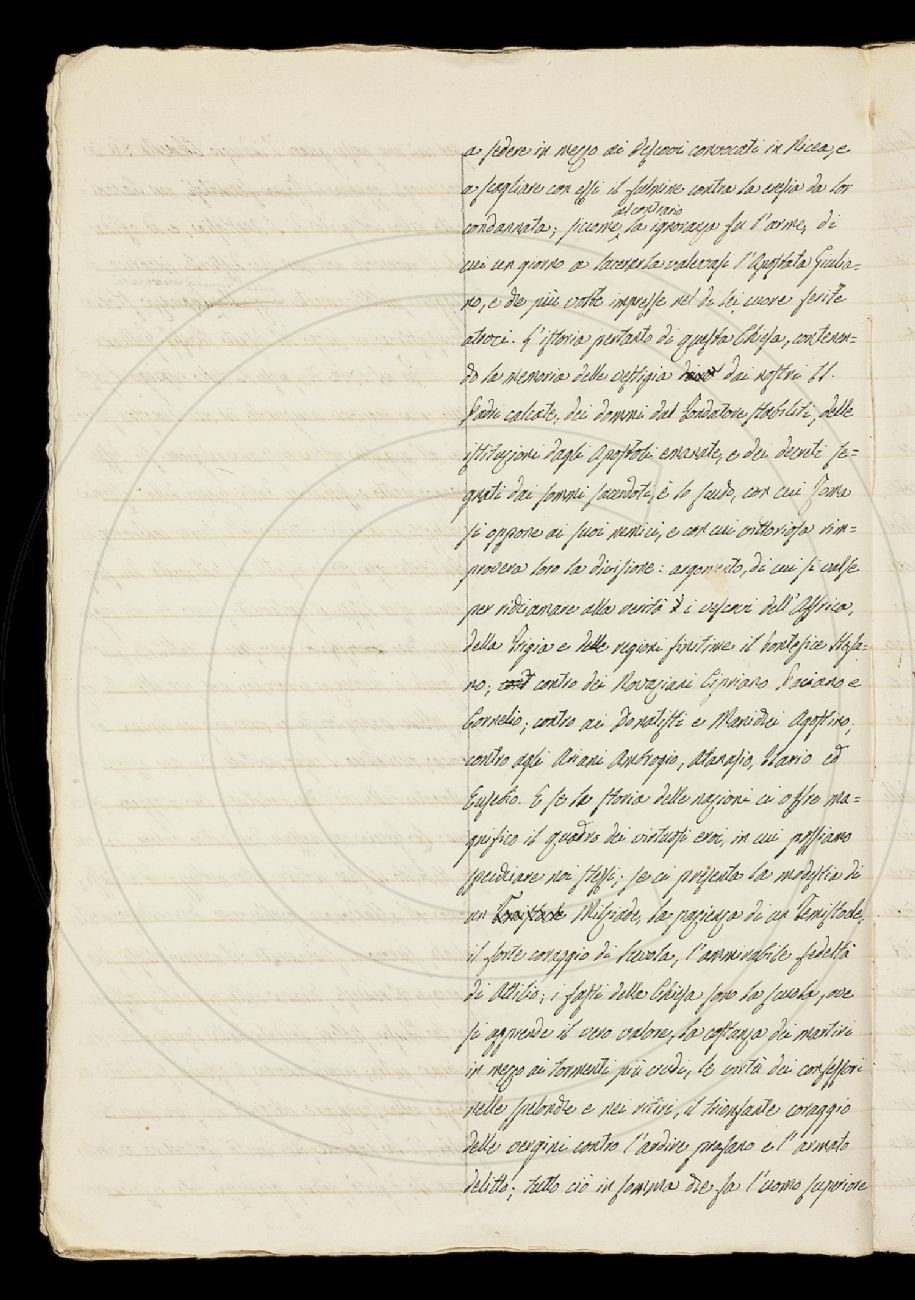 a sedere in mezzo ai Vescovi convocati in Nicea, e
a scagliare con essi il fulmine contra la eresia da lor
al contrario
condannata; siccome la ignoranza fu l'arme, di
cui un giorno a lacerarla valevasi l'Apostata Giulia=
no, e che più volte impresse nel di lei cuore ferite
atroci. L'istoria pertanto di questa Chiesa, contenen=
do la memoria delle vestigia dai nostri SS.
Padri calcate, dei dommi dal Fondatore stabiliti, delle
istituzioni dagli Apostoli emanate, e dei decreti se=
gnati dai sommi sacerdoti, è lo scudo, con cui
si oppone ai suoi nemici, e con cui vittoriosa rim=
provera loro la divisione: argomento, di cui si valse
per richiamare alla verità i vescovi dell'Affrica,
della Frigia e delle regioni finitime il Pontefice Stefa=
no; contro dei Novaziani Cipriano Paciano e
Cornelio; contro ai Donatisti e Manichei Agostino;
contro agli Ariani Ambrogio, Atanasio, Ilario ed
Eusebio. E se la storia delle nazioni ci offre ma=
gnifico il quadro dei virtuosi eroi, in cui possiamo
specchiare noi stessi; se ci presenta la modestia di
un Temistocle Milziade, la pazienza di un Temistocle,
il forte coraggio di Scevola, l'ammirabile fedeltà
di Attilio; i fasti della Chiesa sono la scuola, ove
si apprende il vero valore, la costanza dei martiri
in mezzo ai tormenti più crudi, le virtù dei confessori
nelle spelonche e nei ritiri, il trionfante coraggio
delle vergini contro l'ardire profano e l'armato
delitto; tutto ciò in somma che fa l'uomo superiore